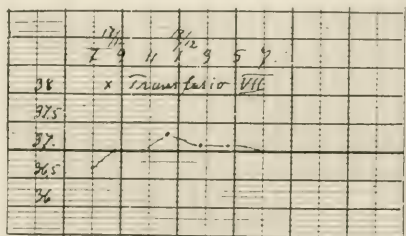 17/12 18/12
7 9 11 1 3 5 7
38 x Transfusio VII
37.5
37.
36.5
36